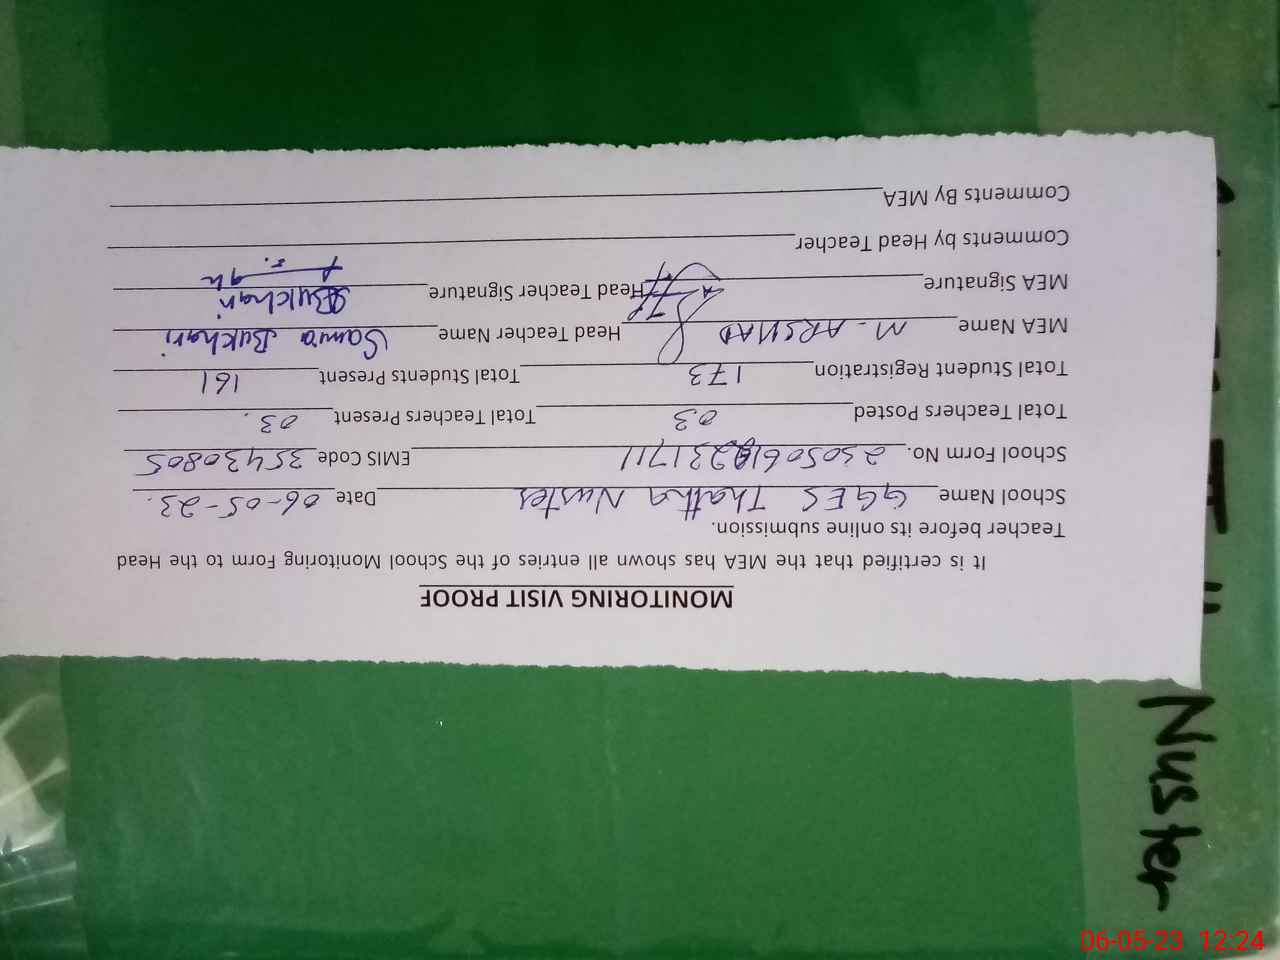 MONITORING VISIT PROOF
It is certified that the MEA has shown all entries of the School Monitoring Form to the Head
Teacher before its online submission.
School Name GGES Thatha Nuster Date 06-05-23.
School Form No. EMIS Code 35430805
Total Teachers Posted 03 Total Teachers Present 03.
Total Student Registration 173 Total Students Present 161
MEA Name M. ARSHAD Head Teacher Name Samra Bukhari
MEA Signature Head Teacher Signature SBukhari
Comments by Head Teacher
Comments By MEA
Nuster
06-05-23 12:24